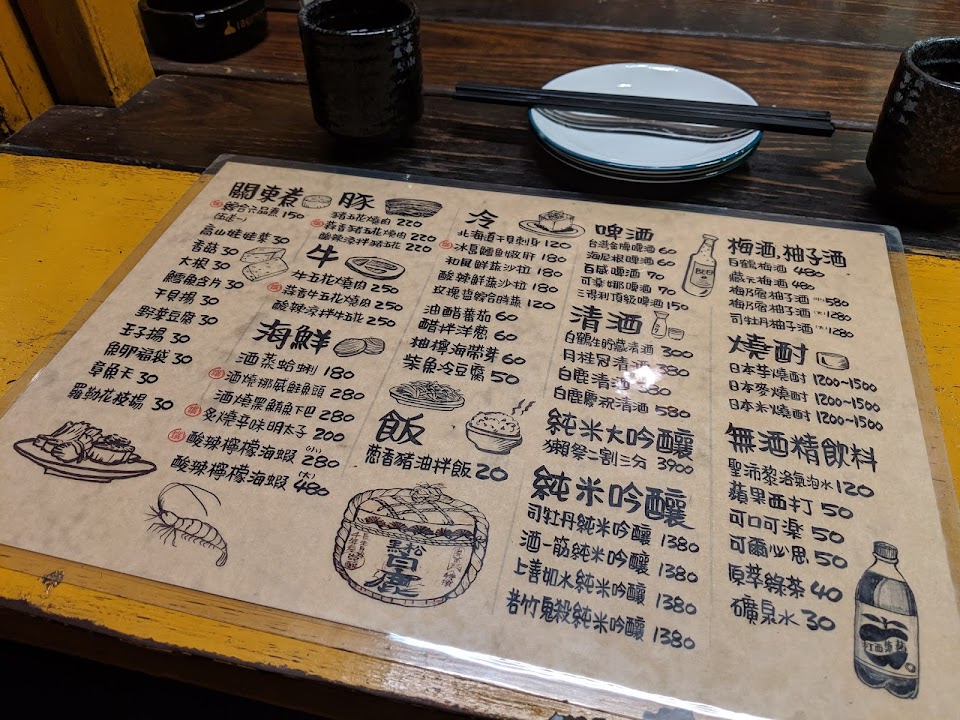 關東煮
綜合六品煮 150
高山娃娃菜 30
香菇 30
大根 30
鱈魚含片 30
干貝揚 30
野菜豆腐 30
玉子揚 30
魚卵福袋 30
章魚天 30
羅勒花枝揚 30
豚
豬五花燒肉 220
蒜香豬五花燒肉 220
酸辣涼拌豬五花 220
牛
牛五花燒肉 250
蒜香牛五花燒肉 250
酸辣涼拌牛五花 250
海鮮
酒蒸蛤蜊 180
酒燒挪威鮭魚頭 280
酒燒黑鯛魚下巴 280
炙燒辛味明太子 200
酸辣檸檬海蝦(小) 280
酸辣檸檬海蝦(大) 480
冷
北海道干貝刺身 120
冰島鱈魚嫩肝 180
和風鮮蔬沙拉 180
酸辣鮮蔬沙拉 180
玫瑰鹽韓國時蔬 120
油醋蕃茄 60
醋拌洋蔥 60
柚檸海帶芽 60
柴魚冷豆腐 50
飯
蔥香豬油拌飯 20
松
白鹿
啤酒
台灣金牌啤酒 60
海尼根啤酒 60
百威啤酒 70
可樂娜啤酒 70
三得利頂級啤酒 150
BEER
清酒
白鶴生貯藏清酒 300
月桂冠清酒 380
白鹿清酒
白鹿慶祝清酒 580
純米大吟釀
獺祭二割三分 3900
純米吟釀
司牡丹純米吟釀 1380
酒一筋純米吟釀 1380
上善如水純米吟釀 1380
若竹鬼殺純米吟釀 1380
梅酒,柚子酒
白鶴梅酒 480
藏元梅酒 480
梅乃宿柚子酒(小) 580
梅乃宿柚子酒(大) 1280
司牡丹柚子酒(大) 1280
燒酎
日本芋燒酎 1200~1500
日本麥燒酎 1200~1500
日本米燒酎 1200~1500
無酒精飲料
聖沛黎洛氣泡水 120
蘋果西打 50
可口可樂 50
可爾必思 50
原萃綠茶 40
礦泉水 30